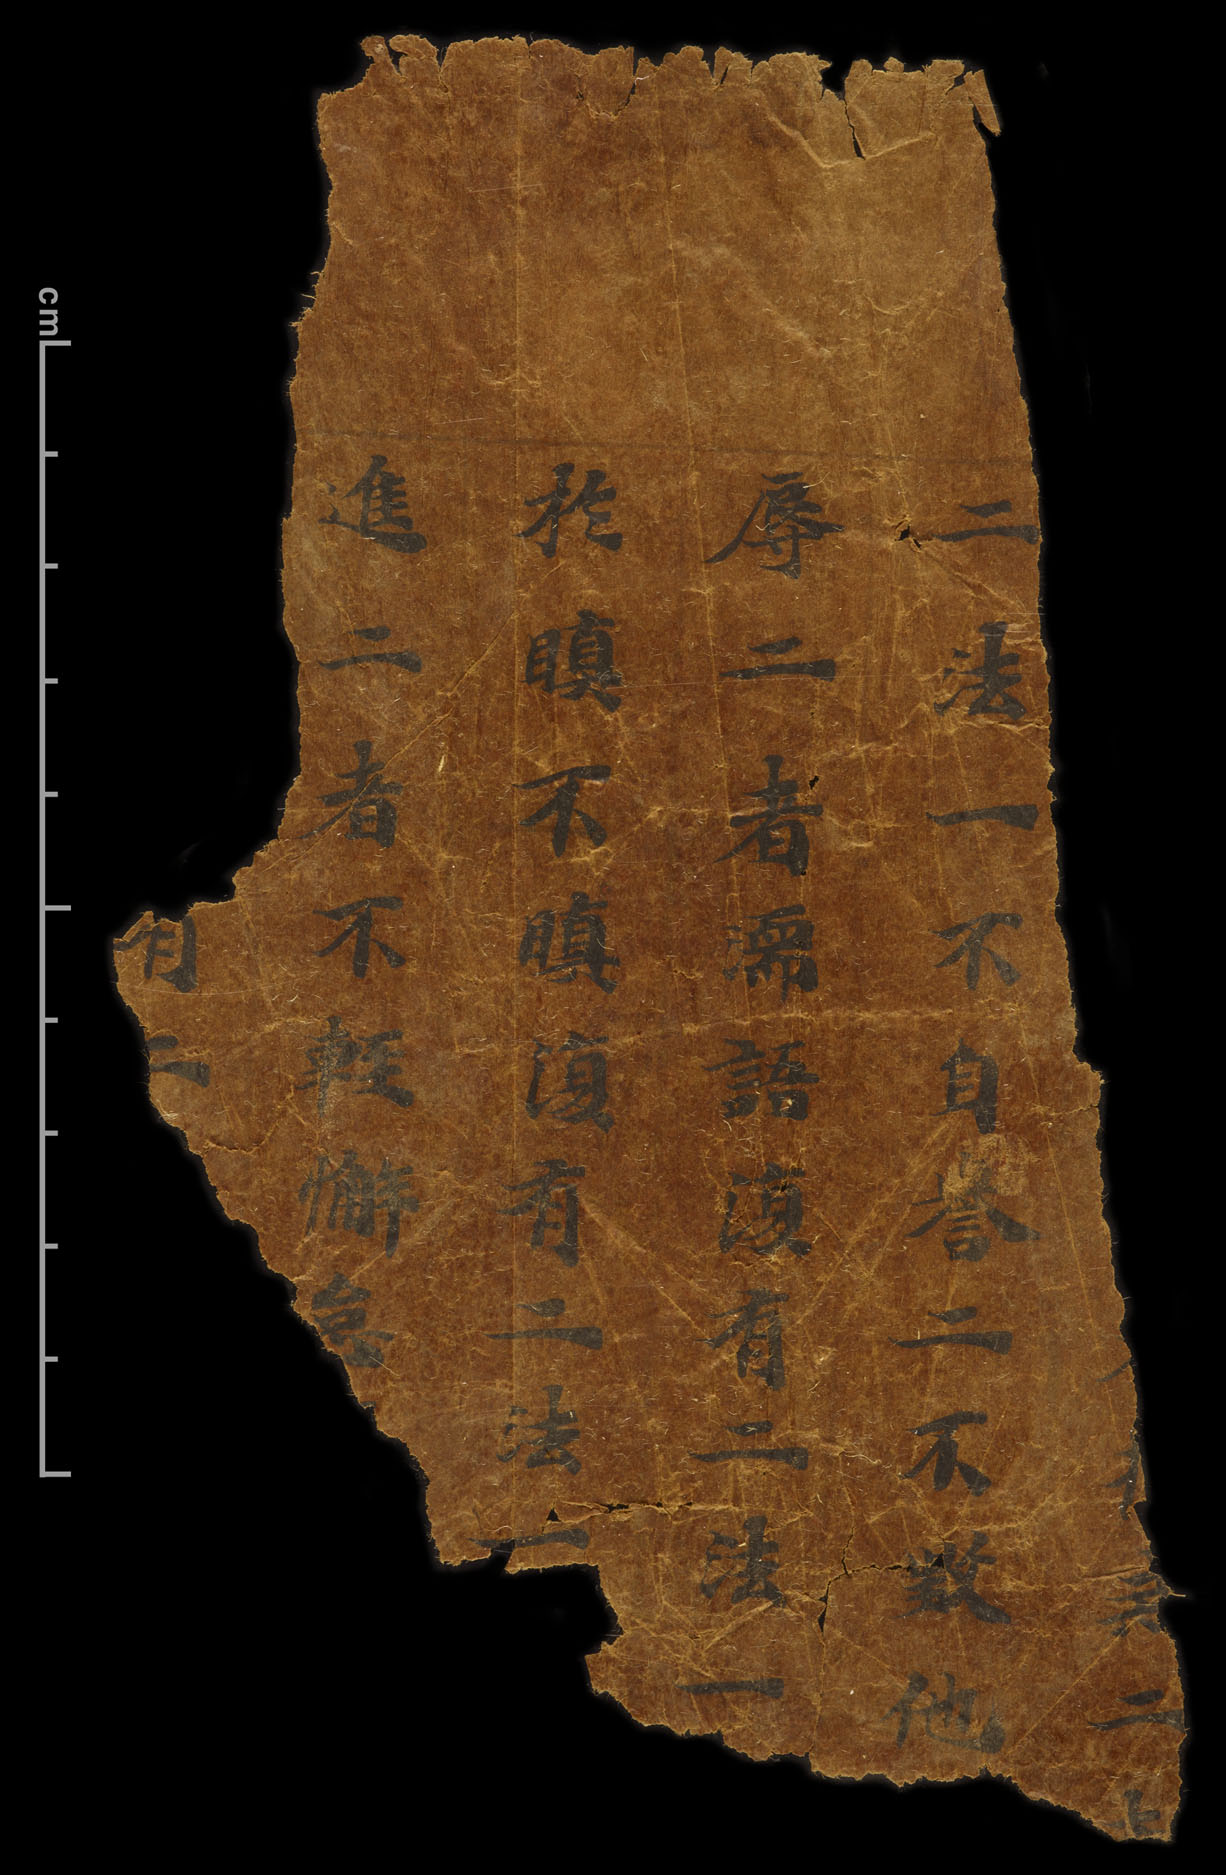 二
二法一不自誉二不毀他
辱二者濡語復有二法一
於瞋不瞋復有二法一
進二者不輕懈怠
二